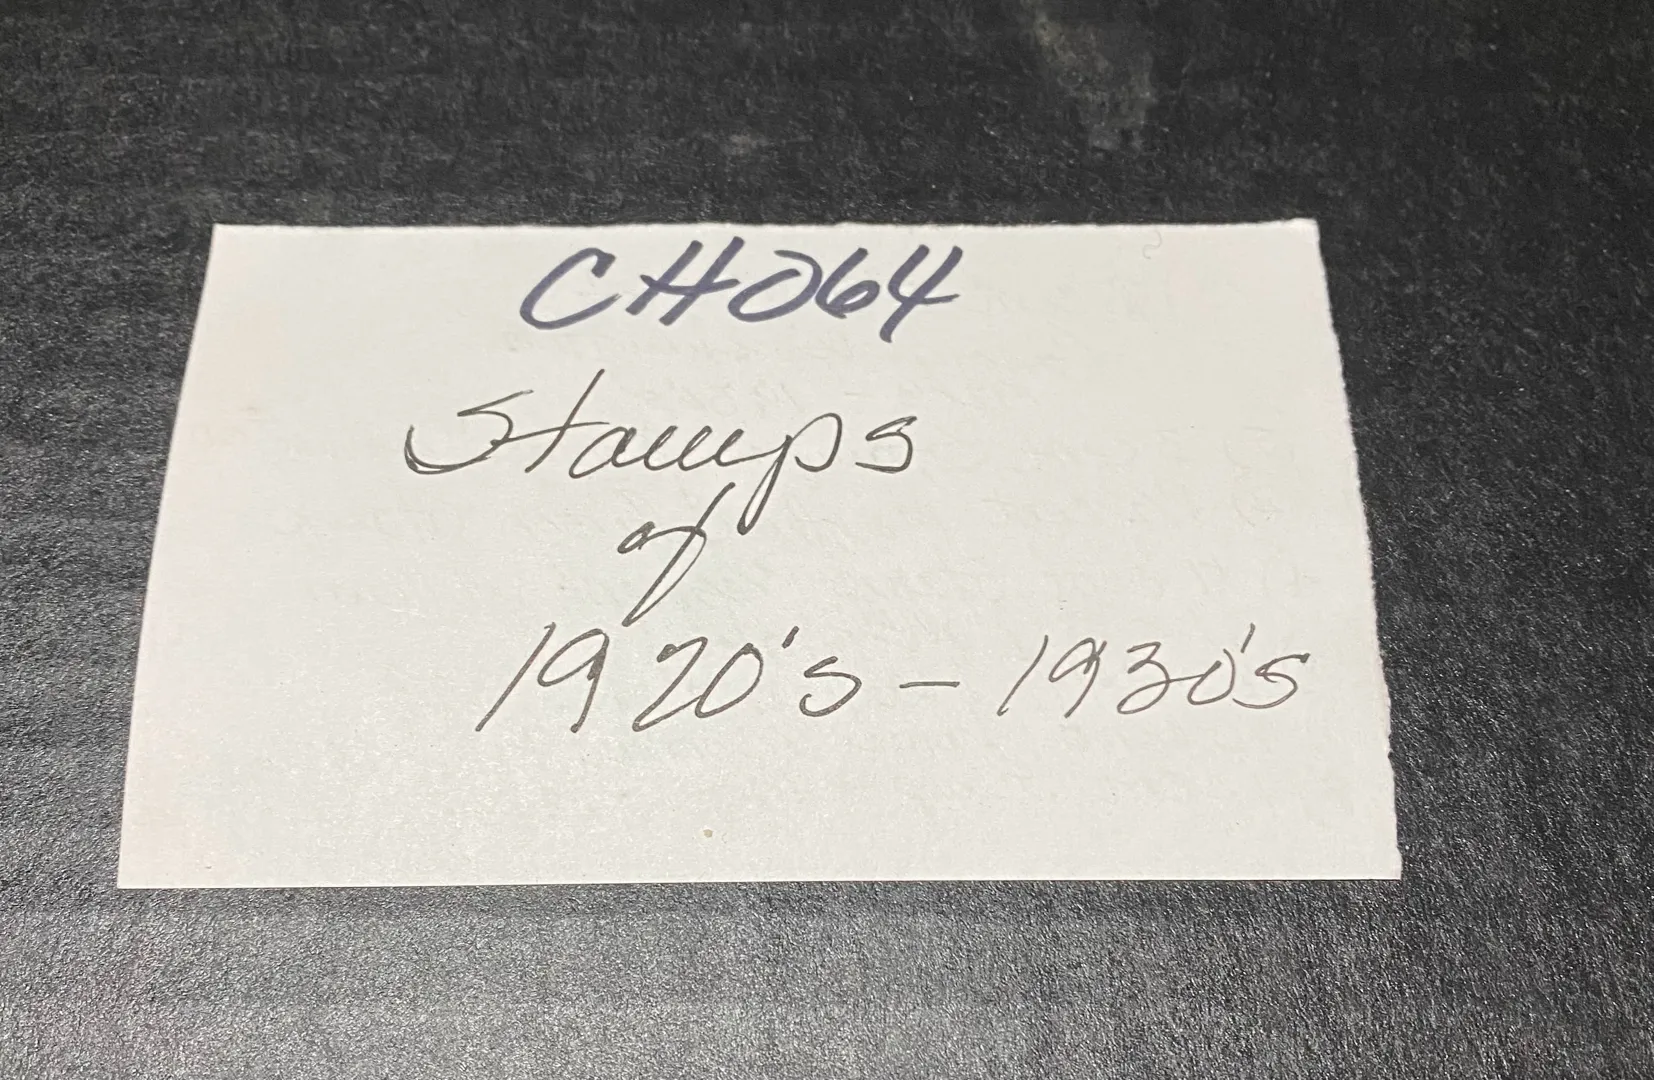 CH064
Stamps
of
1920's - 1930's